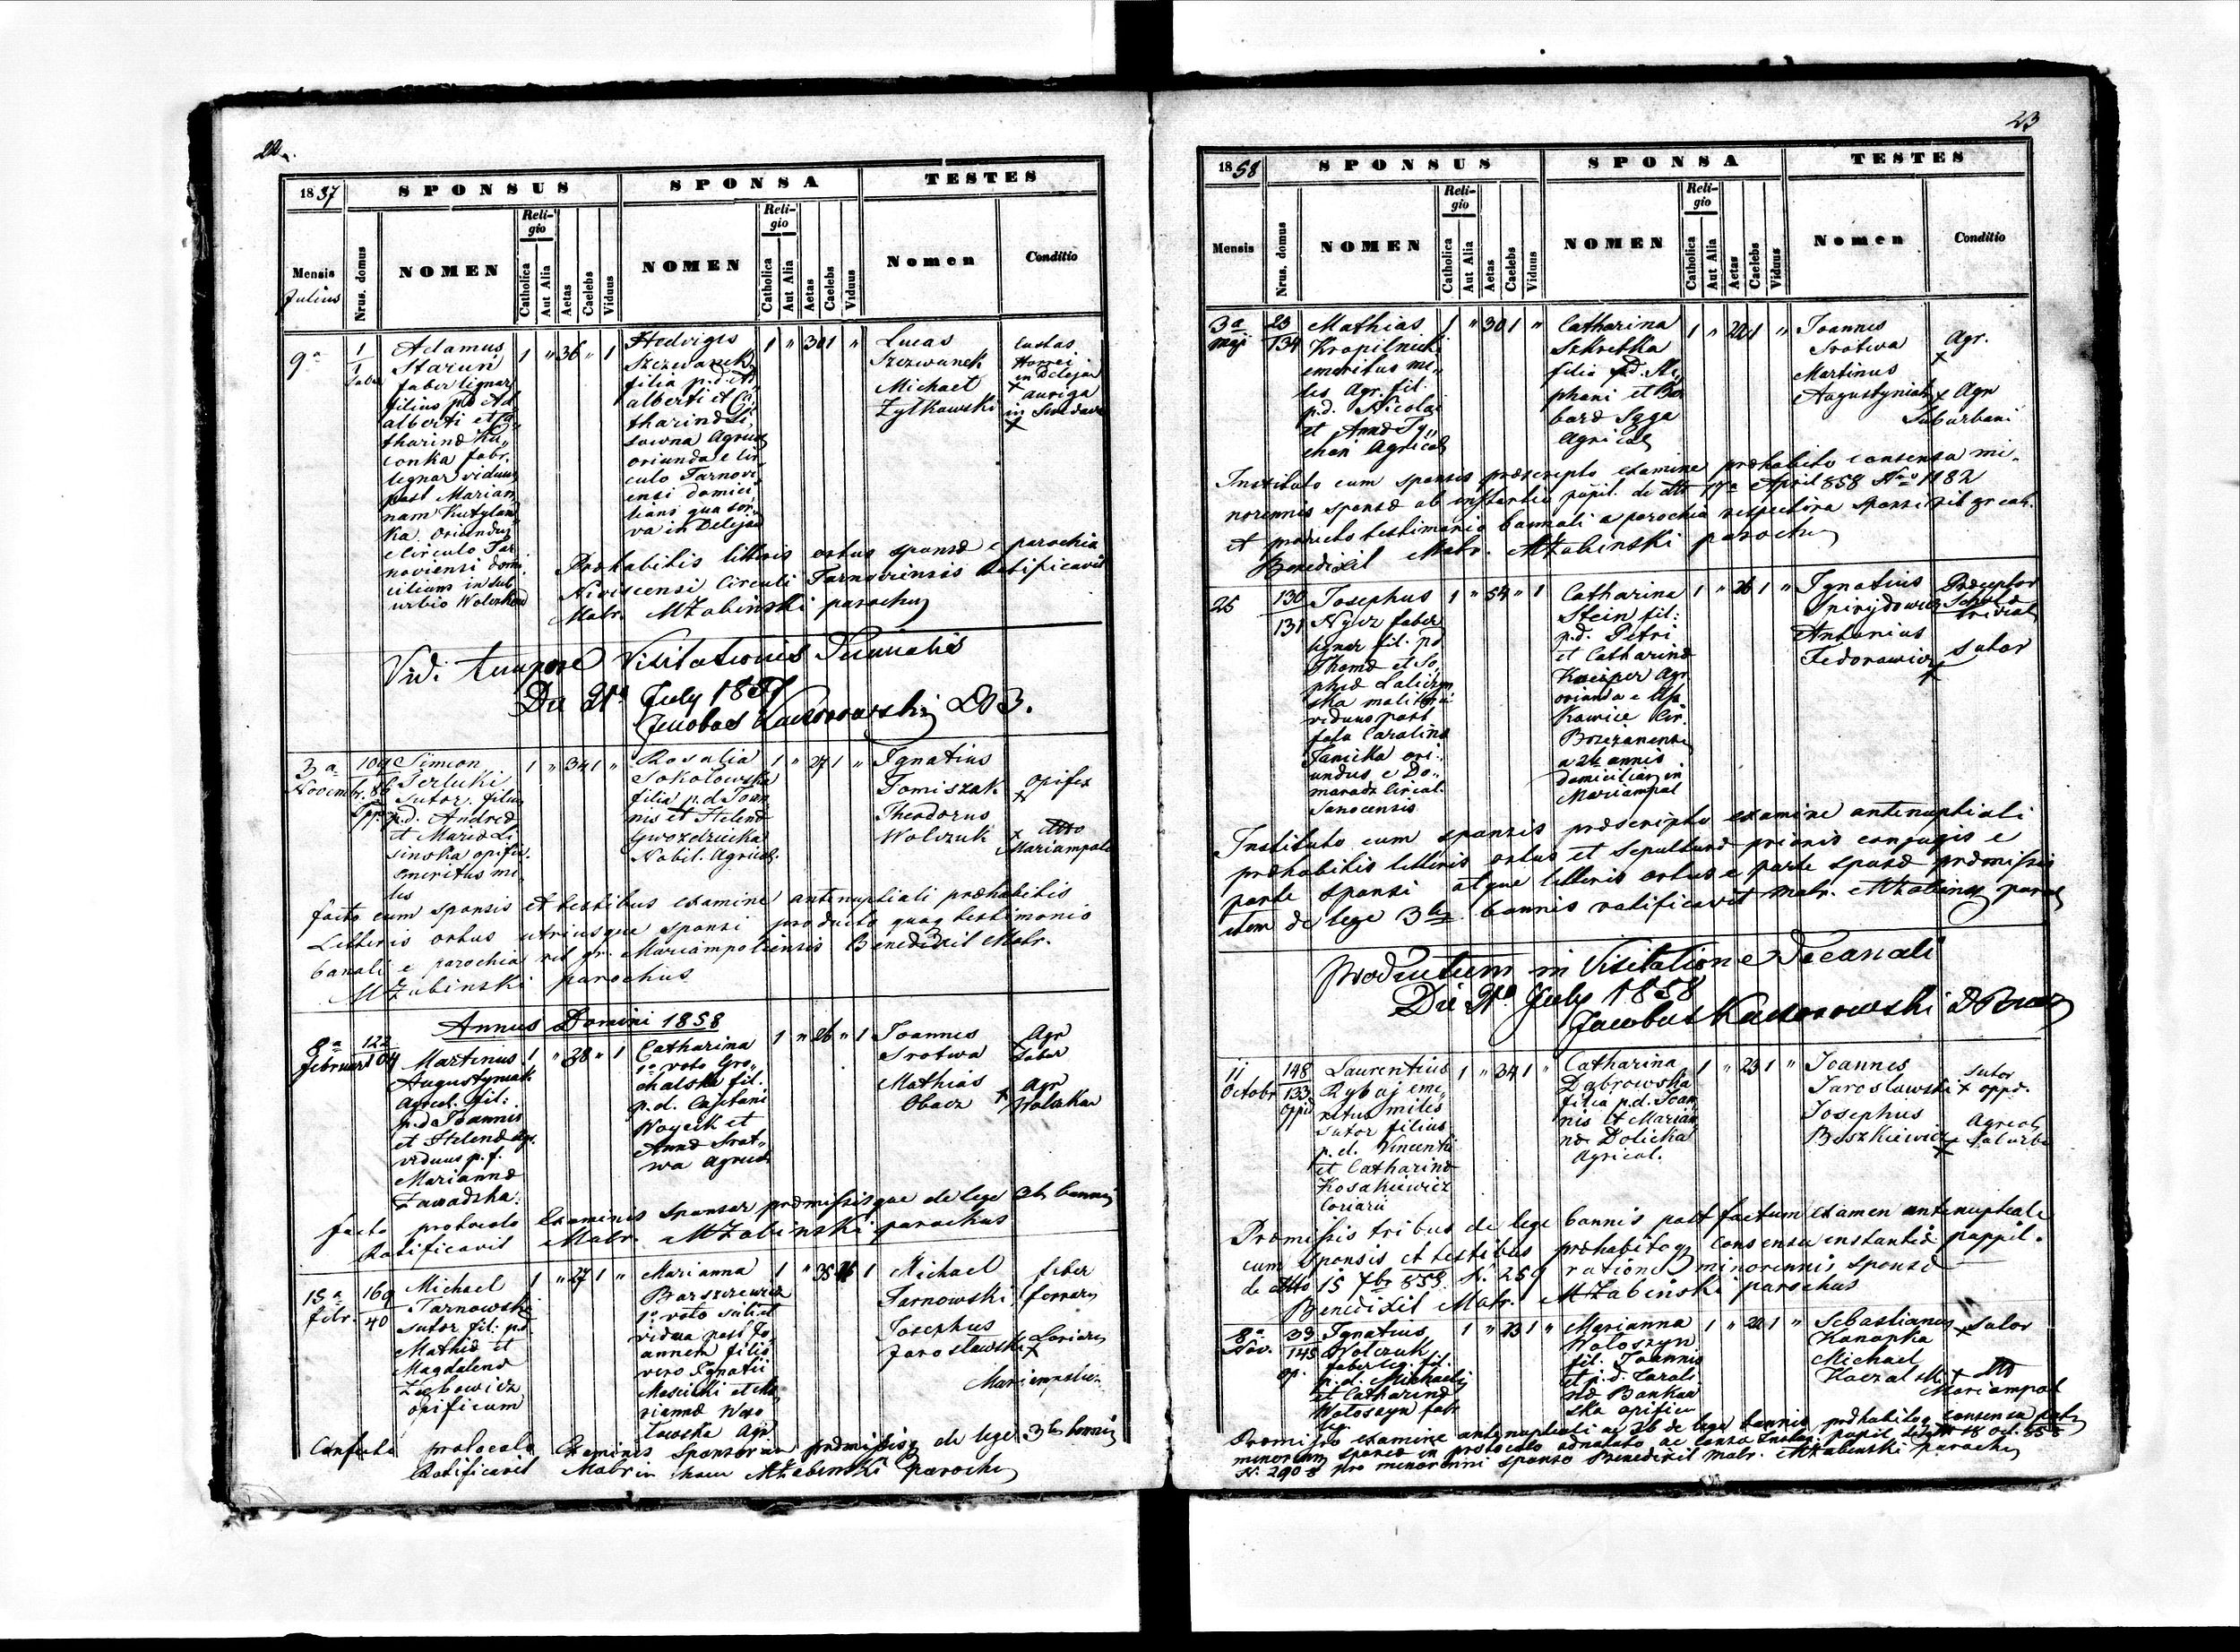 22.
1857 SPONSUS SPONSA TESTES
Mensis Julius Nrus. domus NOMEN Religio Catholica Aut Alia Aetas Caelebs Viduus NOMEN Religio Catholica Aut Alia Aetas Caelebs Viduus Nomen Conditio
9a
1
1
Adamus
Starun
faber lignar
filius pd Ad
alberti et Ca
tharinæ Ku
conka fabr.
lignar viduus
post Marian
nam Kutylow
ka. Oriundus
e Circulo Tar
noviensi domi
cilians in sub
urbio Wolczkow
1 " 36 " 1
Hedviges
filia p.d. Ad
alberti et Ca
tharinæ Li
sowna Agricol
oriunda e Cir
culo Tarnovi
ensi domici
lians qua ser
va in Delejow
1 " 30 1 "
Lucas
Szczwanek
Michael
Zytkowski
Custos
Horrei
in Delejow
x
auriga
x
Præhabitis litteris ortus sponsæ e parochia
Circuli Tarnoviensis Ratificavit
Matr. MZabinski parochus
Vidi tempore Visitationis Decanalis
Die 21a July 1857
Jacobus
3a
Novembr.
109
86
Opp.
Simeon
Perlucki
Sutor. filius
p.d. Andreæ
et Mariæ Li
sinska opific.
emeritus mi
les
1 " 34 1 "
Rosalia
Sokołowska
filia p.d. Joan
nis et Helenæ
Gwozdziecka
Nobil. Agricol.
1 " 27 1 "
Ignatius
Tomiszak
Theodorus
Wolczuk
opifex
x
x dtto
Mariampol
facto cum sponsis et testibus examine antenuptiali præhabitis
Litteris ortus utriusque sponsi producto quoq testimonio
banali e parochia rit gr. Mariampoliensis Benedixit Matr.
MZabinski parochus
Annus Domini 1858
8a
Februar
122
104
Martinus
Augustyniak
Agricol. fil:
p.d. Joannis
et Helenæ Agr.
viduus p. f.
Mariannæ
Zawadzka.
1 " 38 " 1
Catharina
1o voto Gro
chalska fil.
p.d. Cajetani
Woycik et
Annæ Srot
wa Agricol
1 " 26 " 1
Joannes
Srotwa
Mathias
Obacz
Agr
faber
x Agr
Wolczkow
facto protocolo Examinis sponsor præmissisque de lege 3b bannis
Ratificavit Matr. MZabinski parochus
15a
febr.
169
40
Michael
Tarnowski
Sutor fil: p.d.
Mathiæ et
Magdalenæ
opificum
1 " 27 1 "
Marianna
Barszczewicz
1o voto
vidua post Jo
annem filia
vero Ignatii
Moscicki et Ma
riannæ Wero
Agr
1 " 35 1
Michael
Tarnowski
Josephus
Jarosławski
faber
ferrari
Coriari
x
Confecto protocolo Examinis Sponsorum præmissisq de lege 3b bannis
Ratificavit Matrim MZabinski parochus
23
1858 SPONSUS SPONSA TESTES
Mensis Nrus. domus NOMEN Religio Catholica Aut Alia Aetas Caelebs Viduus NOMEN Religio Catholica Aut Alia Aetas Caelebs Viduus Nomen Conditio
3a
Maji
23
134
Mathias
Kropilnicki
emeritus mi
les Agr. fil:
p.d. Nicolai
et Annæ Ty
chan Agricol
1 " 30 1 "
Catharina
Szkretka
filia p.d. Ste
phani et Bar
baræ Saga
Agricol
1 " 22 1 "
Joannes
Srotwa
Martinus
Augustyniak
Agr.
x
x Agr
Suburbani
Instituto cum sponsis præscripto examine præhabito consensu mi
norennis sponsæ ab instantia pupil. de dtto 17a April 858 No 1182
et producto testimonio bannali a parochia respectiva sponsi rit gr cat.
Benedixit Matr. MZabinski parochus
25
130
131
Josephus
faber
lignar fil. pd
Thomæ et So
phiæ
viduus post
fata Carolinæ
Janicka ori
undus e Do
maradz Circul.
Sanocensis
1 " 54 " 1
Catharina
Stein fil:
p.d. Petri
et Catharinæ
Agr
oriunda e
Cir.
Brzezanensi
a 24 annis
domicilians in
Mariampol
1 " 26 1 "
Ignatius
Spirydowicz
Antonius
Fedorowicz
Præceptor
Scholæ
trivial
Sutor
x
Instituto cum sponsis præscripto examine antenuptiali
præhabitis litteris ortus et sepulturæ prioris conjugis e
parte sponsi atque litteris ortus e parte sponsæ præmissis
item de lege 3b bannis ratificavit Matr. MZabinski paroch
Productum in Visitatione Decanali
Die 21a July 1858
Jacobus
11
Octobr
148
133
oppid
Laurentius
Rybaj eme
ritus miles
sutor filius
p.d. Vincentii
et Catharinæ
Kosakiewicz
Coriarii
1 " 34 1 "
Catharina
Dąbrowska
filia p.d. Joan
nis et Marian
næ Dolicka
Agricol.
1 " 23 1 "
Joannes
Jarosławski
Josephus
Boszkiewicz
Sutor
x oppd.
Agricol
x suburb
Præmissis tribus de lege bannis post factum examen antenuptiale
cum sponsis et testibus præhabitoq consensu instantiæ puppil.
de dtto 15 7br 858 N. 259 ratione minorennis sponsæ
Benedixit Matr. MZabinski parochus
8a
Nov.
39
145
op.
Ignatius
Wolczuk
faber lig. fil.
p.d. Michaelis
et Catharinæ
Wołoszyn fabr
lig.
1 " 23 1 "
Marianna
Wołoszyn
fil. Joannis
et p.d. Caroli
næ Bankow
ska opificu
1 " 22 1 "
Sebastianus
Kanapka
Michael
x Sutor
x dtto
Mariampol
Præmisso examine antenuptiali ac 3b de lege bannis præhabitoq consensu
minorennis sponsæ in protocolo adnotato ac consensu Instan. pupil. 18 Oct. 858
N. 290 pro minorenni sponso Benedixit Matr. MZabinski parochus